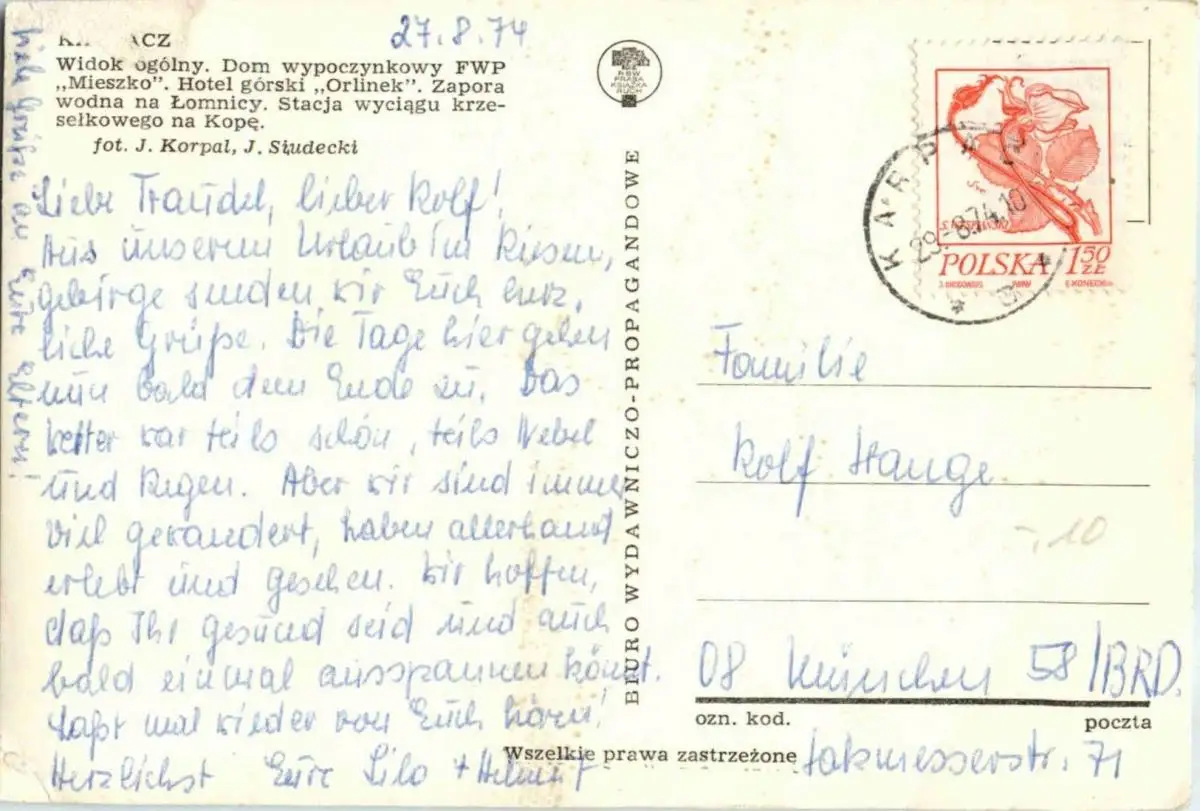 27.8.74
ACZ
Widok ogólny. Dom wypoczynkowy FWP
„Mieszko”. Hotel górski „Orlinek”. Zapora
wodna na Łomnicy. Stacja wyciągu krze-
sełkowego na Kopę.
fot. J. Korpal, J. Siudecki
Liebe Traudel, lieber Rolf!
Aus unserem Urlaub im Riesen,
gebirge senden wir Euch herz,
liche Grüße. Die Tage hier gehen
nun bald dem Ende zu. Das
Wetter war teils schön, teils Nebel
und Regen. Aber wir sind immer
viel gewandert, haben allerhand
erlebt und gesehen. Wir hoffen,
daß Ihr gesund seid und auch
bald einmal ausspannen könnt.
Laßt mal wieder von Euch hören!
Herzlichst Eure Lilo + Helmut
Viele Grüße an Eure Eltern!
BIURO WYDAWNICZO-PROPAGANDOWE
RSW
PRASA
KSIĄŻKA
RUCH
KARPACZ
29.-8.74.10
POLSKA 1.50 ZŁ
PWPW
Familie
Rolf Hange
-.10
08 München 58/BRD.
ozn. kod.
poczta
Wszelkie prawa zastrzeżone
Jakmesserstr. 71